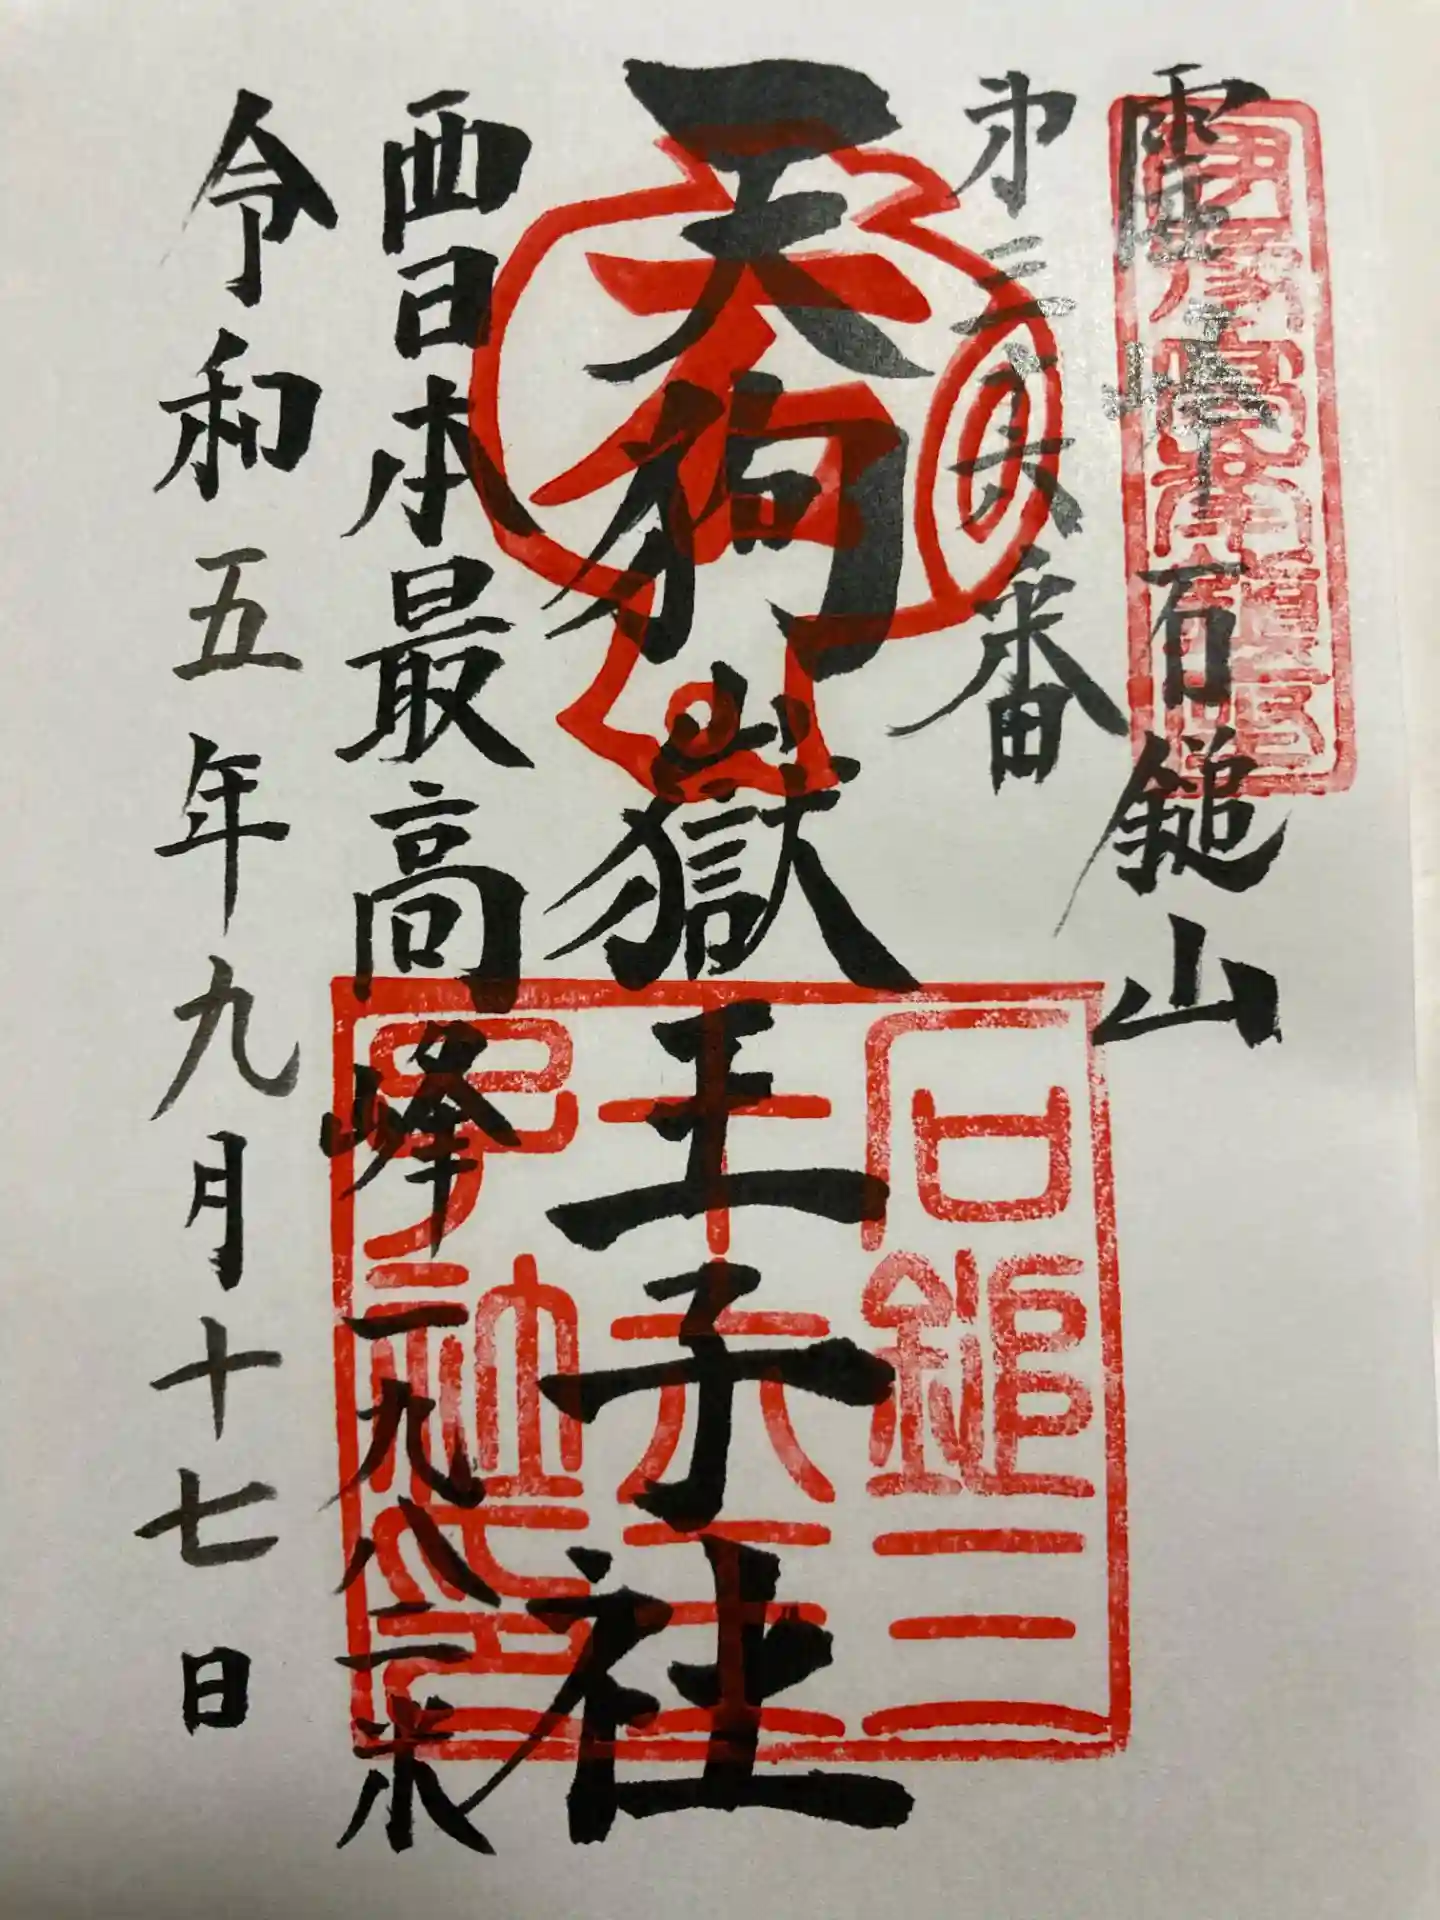 霊峰石鎚山
第三十六番
天狗嶽王子社
西日本最高峰一九八二米
令和五年九月十七日
石鎚三
十六王
子社之印